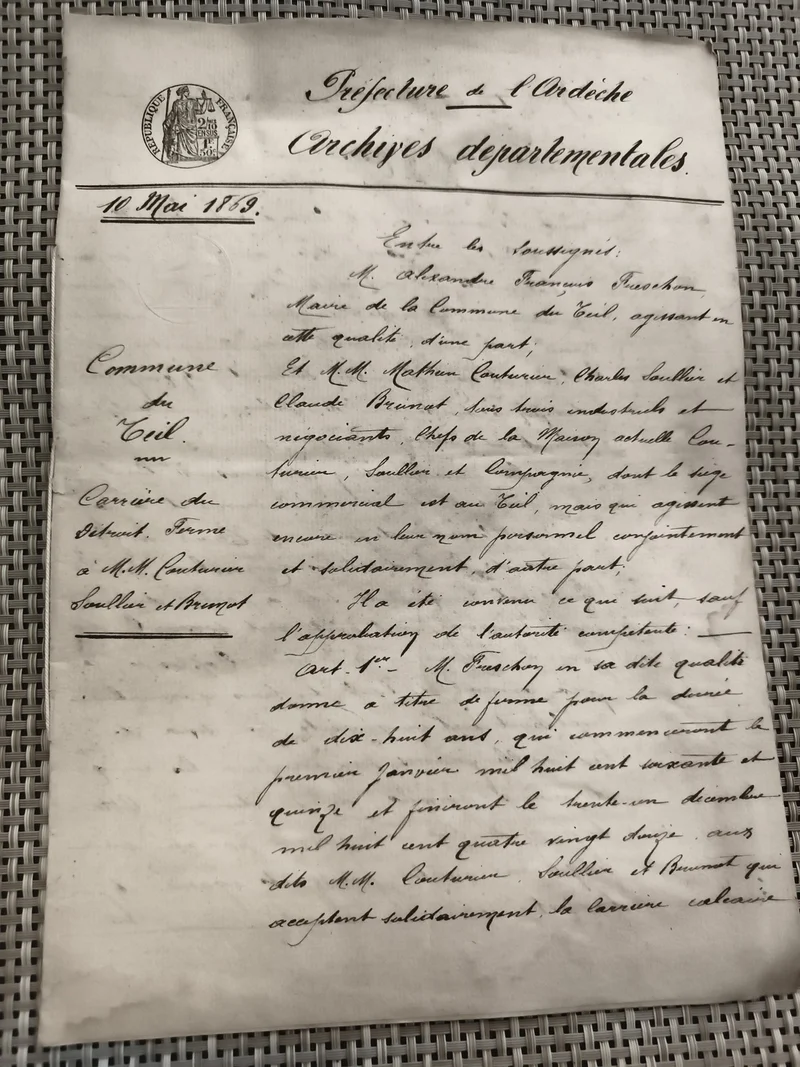 Préfecture de l'Ardèche
Archives départementales.
RÉPUBLIQUE FRANÇAISE
10 Mai 1869.
Commune
du
Teil.
Carrière du
Détroit. Ferme
à M.M. Couturier
Soullier et Brunot
Entre les soussignés:
M. Alexandre François Freschon,
Maire de la Commune du Teil, agissant en
cette qualité, d'une part;
Et M.M. Couturier, Charles Soullier et
Claude Brunot, tous trois industriels et
négociants, Chefs de la Maison actuelle Cou-
turier, Soullier et Compagnie, dont le siège
commercial est au Teil, mais qui agissent
encore en leur nom personnel conjointement
et solidairement, d'autre part;
Il a été convenu ce qui suit, sauf
l'approbation de l'autorité compétente:
Art. 1er - M. Freschon en sa dite qualité
donne à titre de ferme pour la durée
de dix-huit ans, qui commenceront le
premier Janvier mil huit cent soixante et
quinze et finiront le trente-un décembre
mil huit cent quatre vingt douze, aux
dits M.M. Couturier, Soullier et Brunot qui
acceptent solidairement, la Carrière calcaire